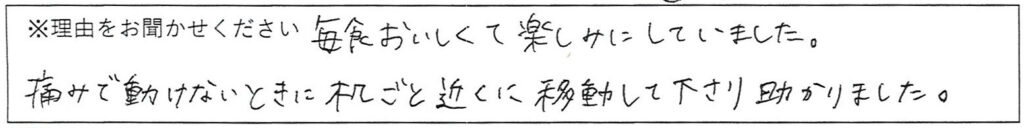 ※理由をお聞かせください 毎食おいしくて楽しみにしていました。
痛みで動けないときに机ごと近くに移動して下さり助かりました。